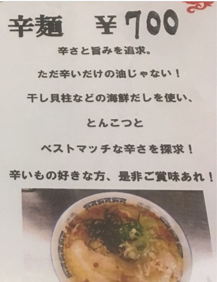 辛麺 ￥700
辛さと旨みを追求。
ただ辛いだけの油じゃない！
干し貝柱などの海鮮だしを使い、
とんこつと
ベストマッチな辛さを探求！
辛いもの好きな方、是非ご賞味あれ！